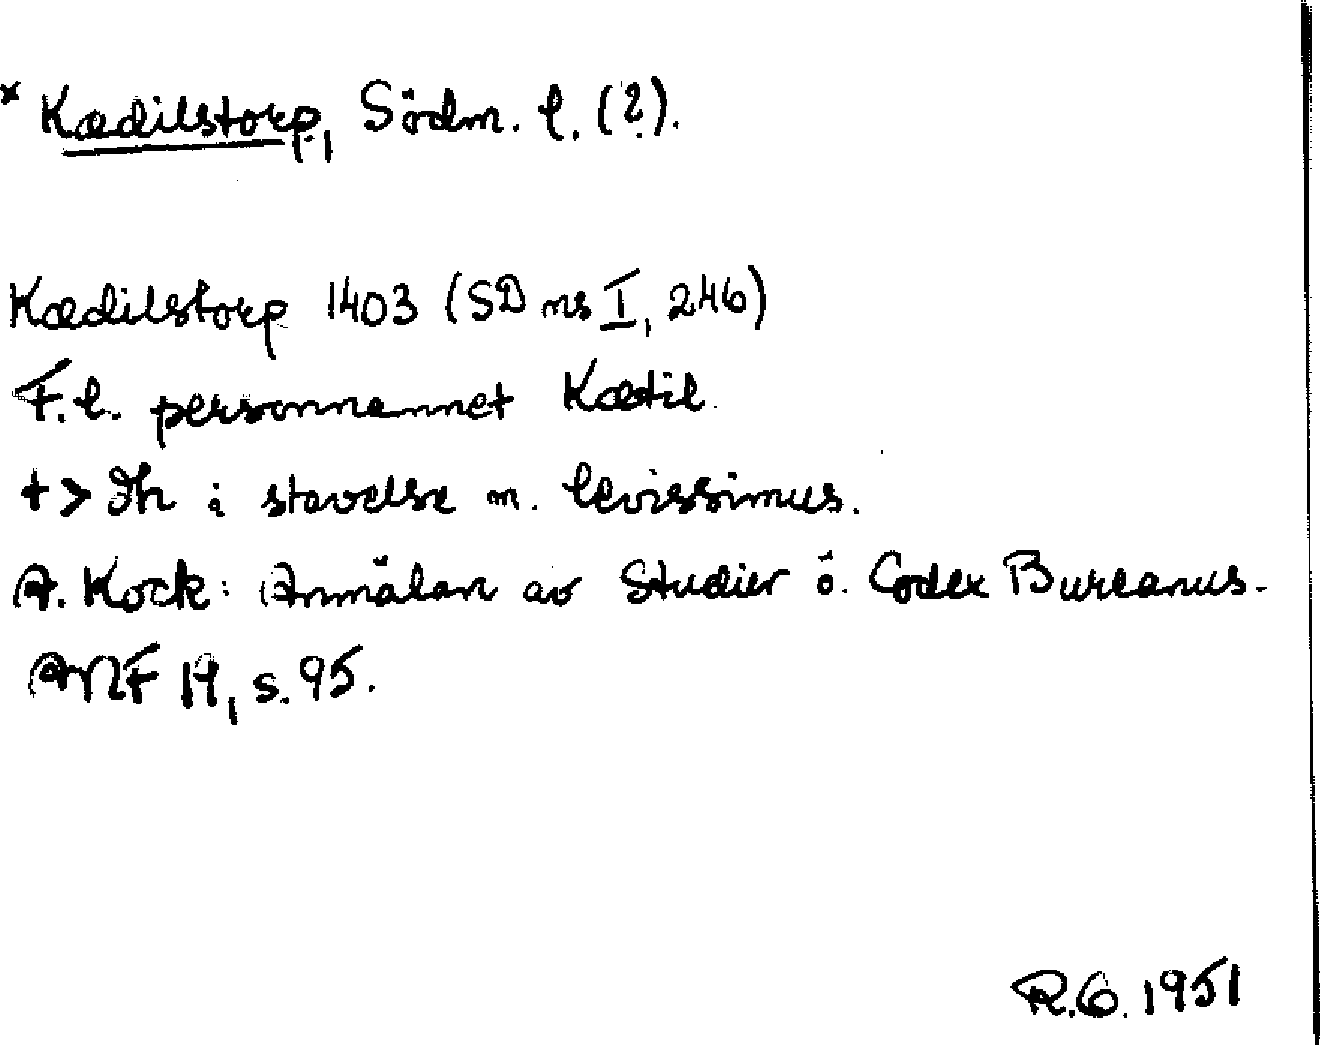 * Kædilstorp, Södm. l. (?).
Kædilstorp 1403 (SD ns I, 246)
F. l. personnamnet Kætil.
t > dh i stavelse m. levissimus.
A. Kock: Anmälan av Studier ö. Codex Bureanus.
ANF 19, s. 95.
R.G. 1951